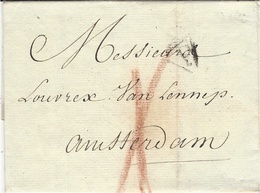 Messieurs
Louvrex Van Lennep.
Amsterdam